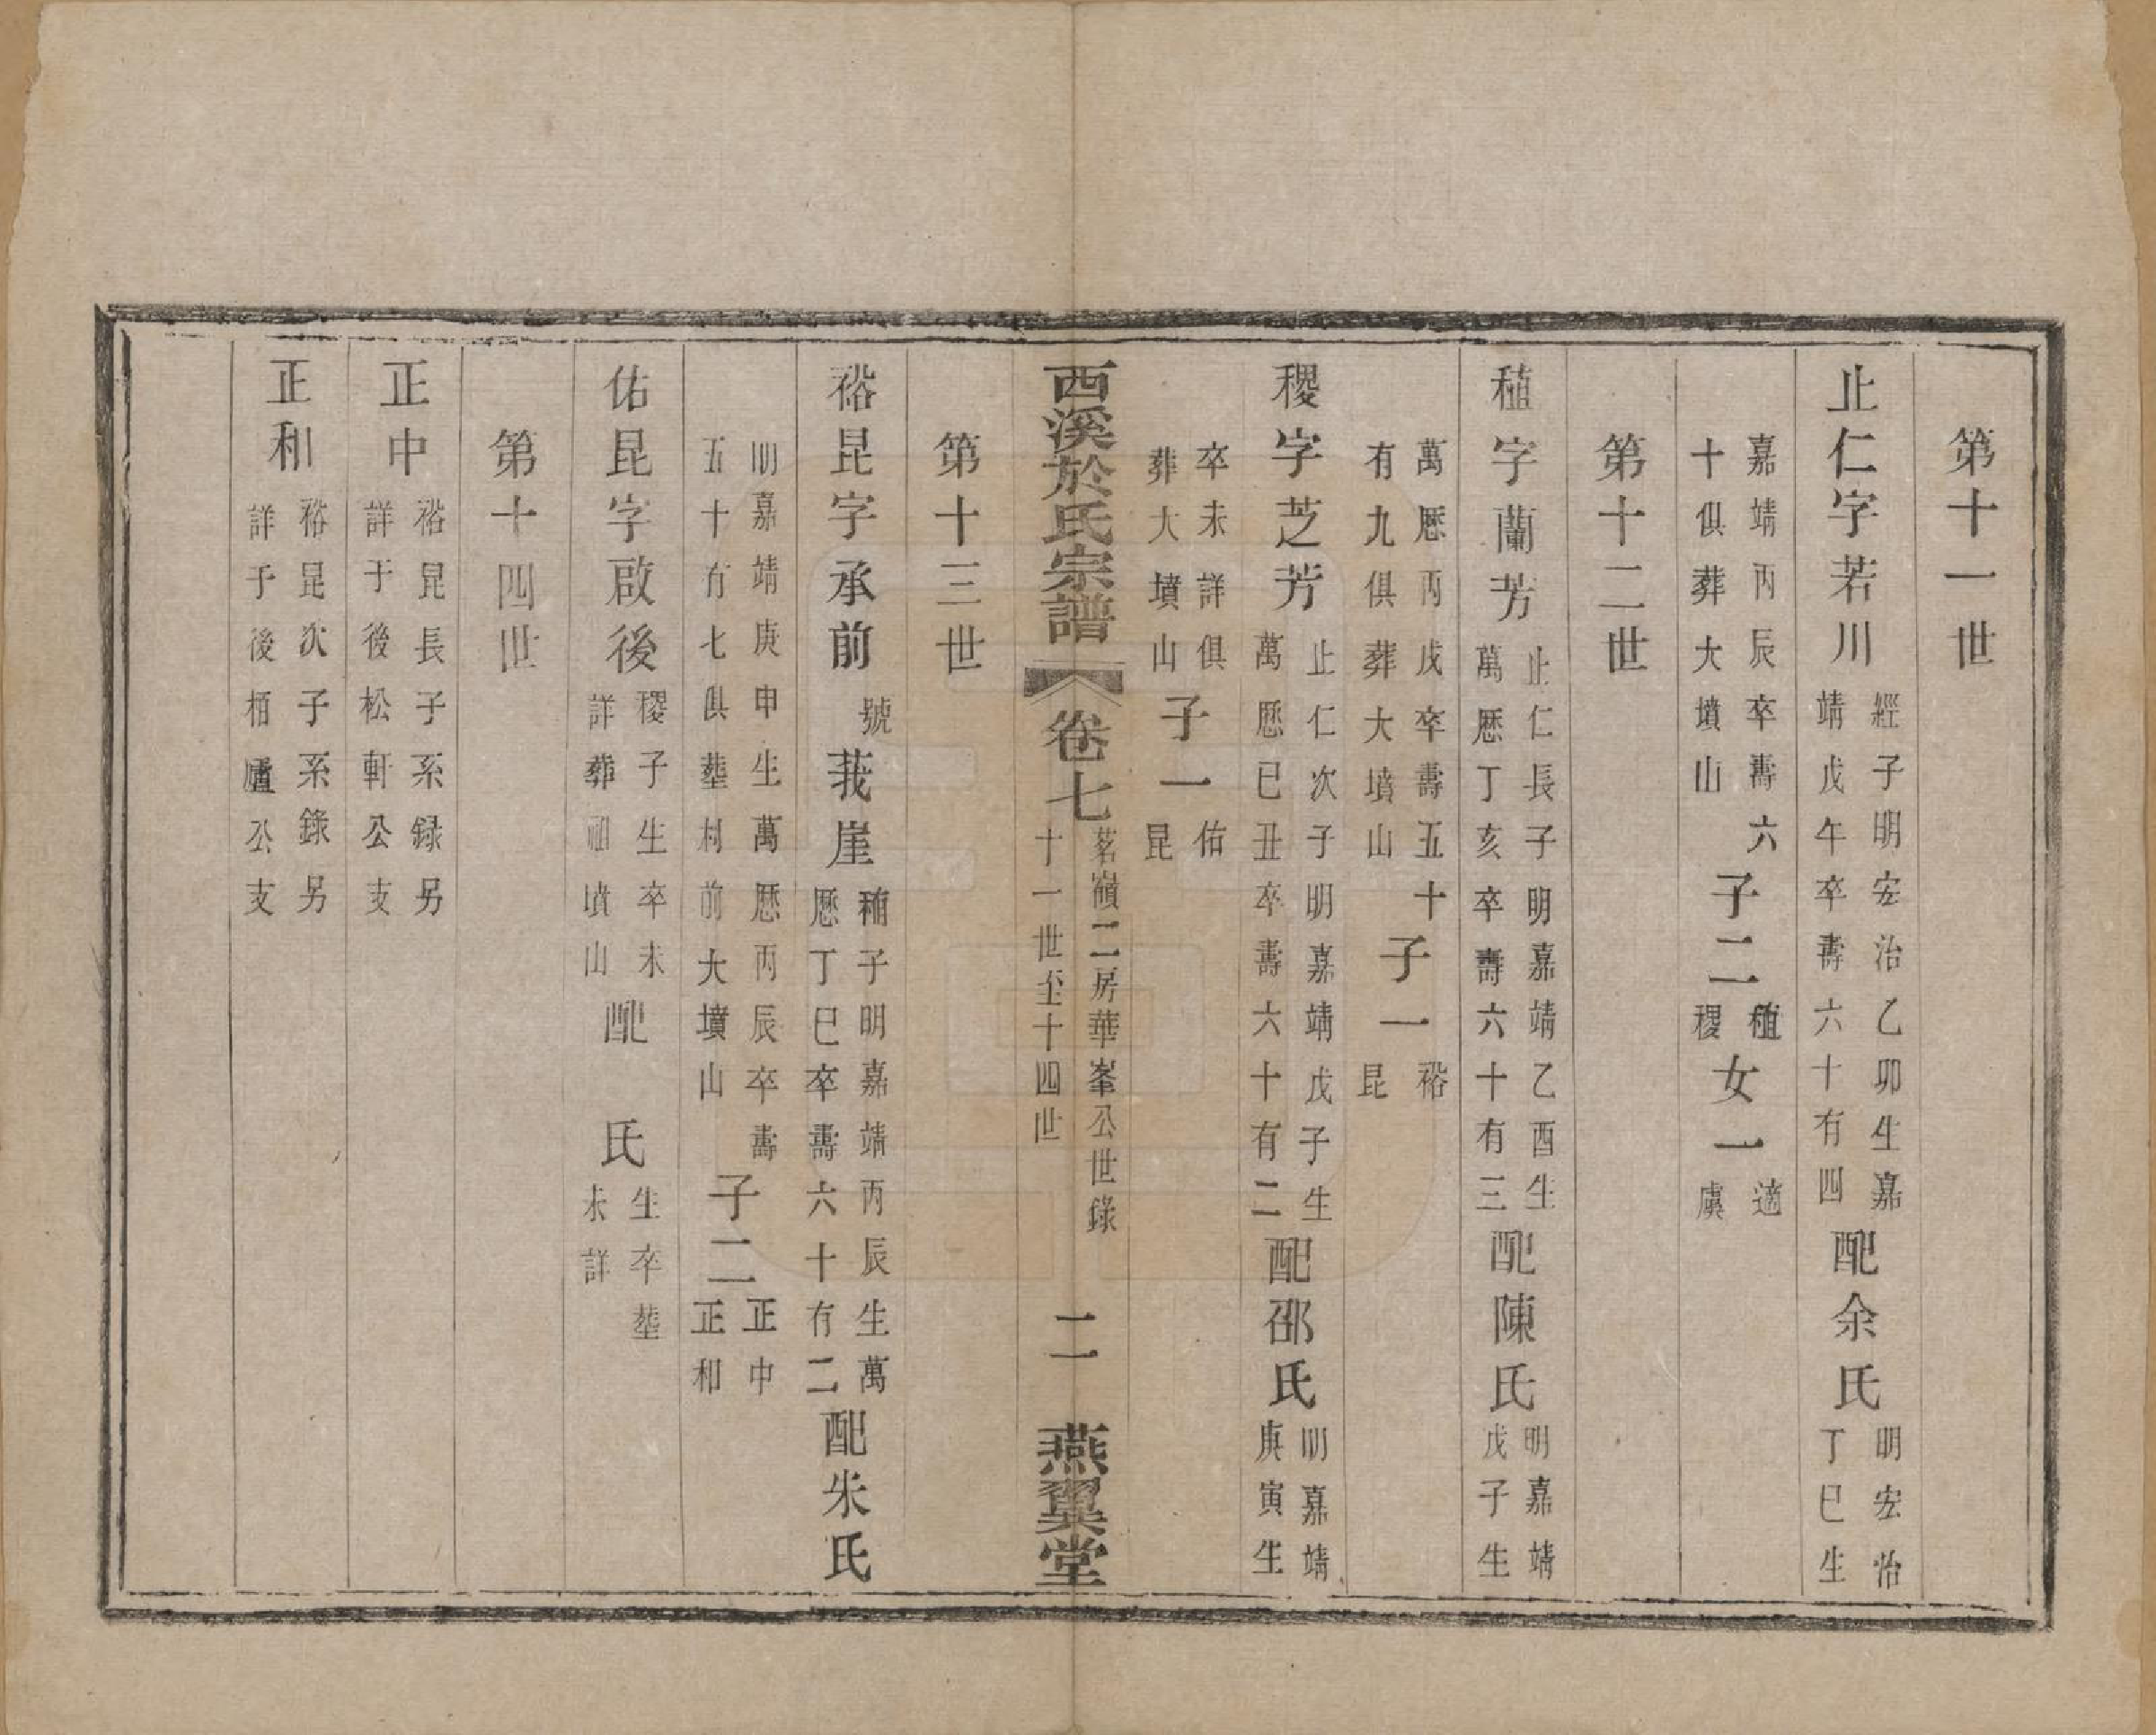 第十一世
止仁字若川 經子明宏治乙卯生嘉靖戊午卒壽六十有四 配余氏 明宏治丁巳生
嘉靖丙辰卒壽六十俱葬大墳山 子二 稙稷 女一 適虞
第十二世
稙字蘭芳 止仁長子明嘉靖乙酉生萬厯丁亥卒壽六十有三 配陳氏 明嘉靖戊子生
萬厯丙戌卒壽五十有九俱葬大墳山 子一 裕昆
稷字芝芳 止仁次子明嘉靖戊子生萬厯己丑卒壽六十有二 配邵氏 明嘉靖庚寅生
卒未詳俱葬大墳山 子一 佑昆
西溪於氏宗譜 卷七 茗嶺二房華峯公世錄十一世至十四世 二 燕翼堂
第十三世
裕昆字承前號莪崖 稙子明嘉靖丙辰生萬厯丁巳卒壽六十有二 配朱氏
明嘉靖庚申生萬厯丙辰卒壽五十有七俱塟村前大墳山 子二 正中正和
佑昆字啟後 稷子生卒未詳葬祖墳山 配 氏 生卒塟未詳
第十四世
正中 裕昆長子系録另詳于後松軒公支
正和 裕昆次子系錄另詳予後栢廬公支